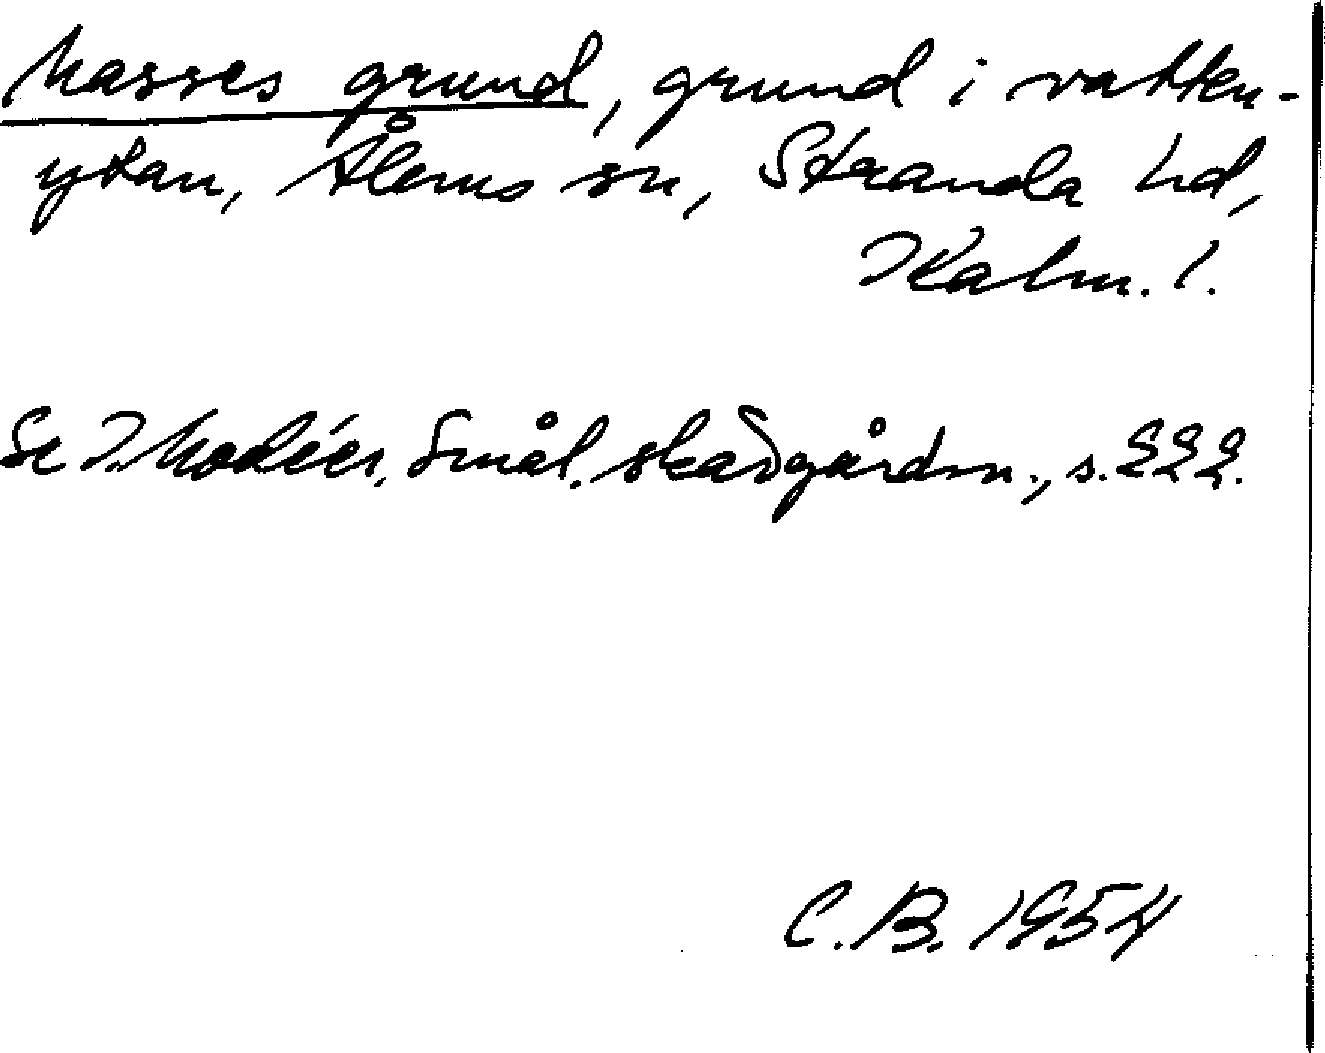 Masses grund, grund i vatten-
ytan, Ålems sn, Stranda hd,
Kalm. l.
Se I. Modéer, Smål. skärgårdsn., s. 222.
C.B. 1954